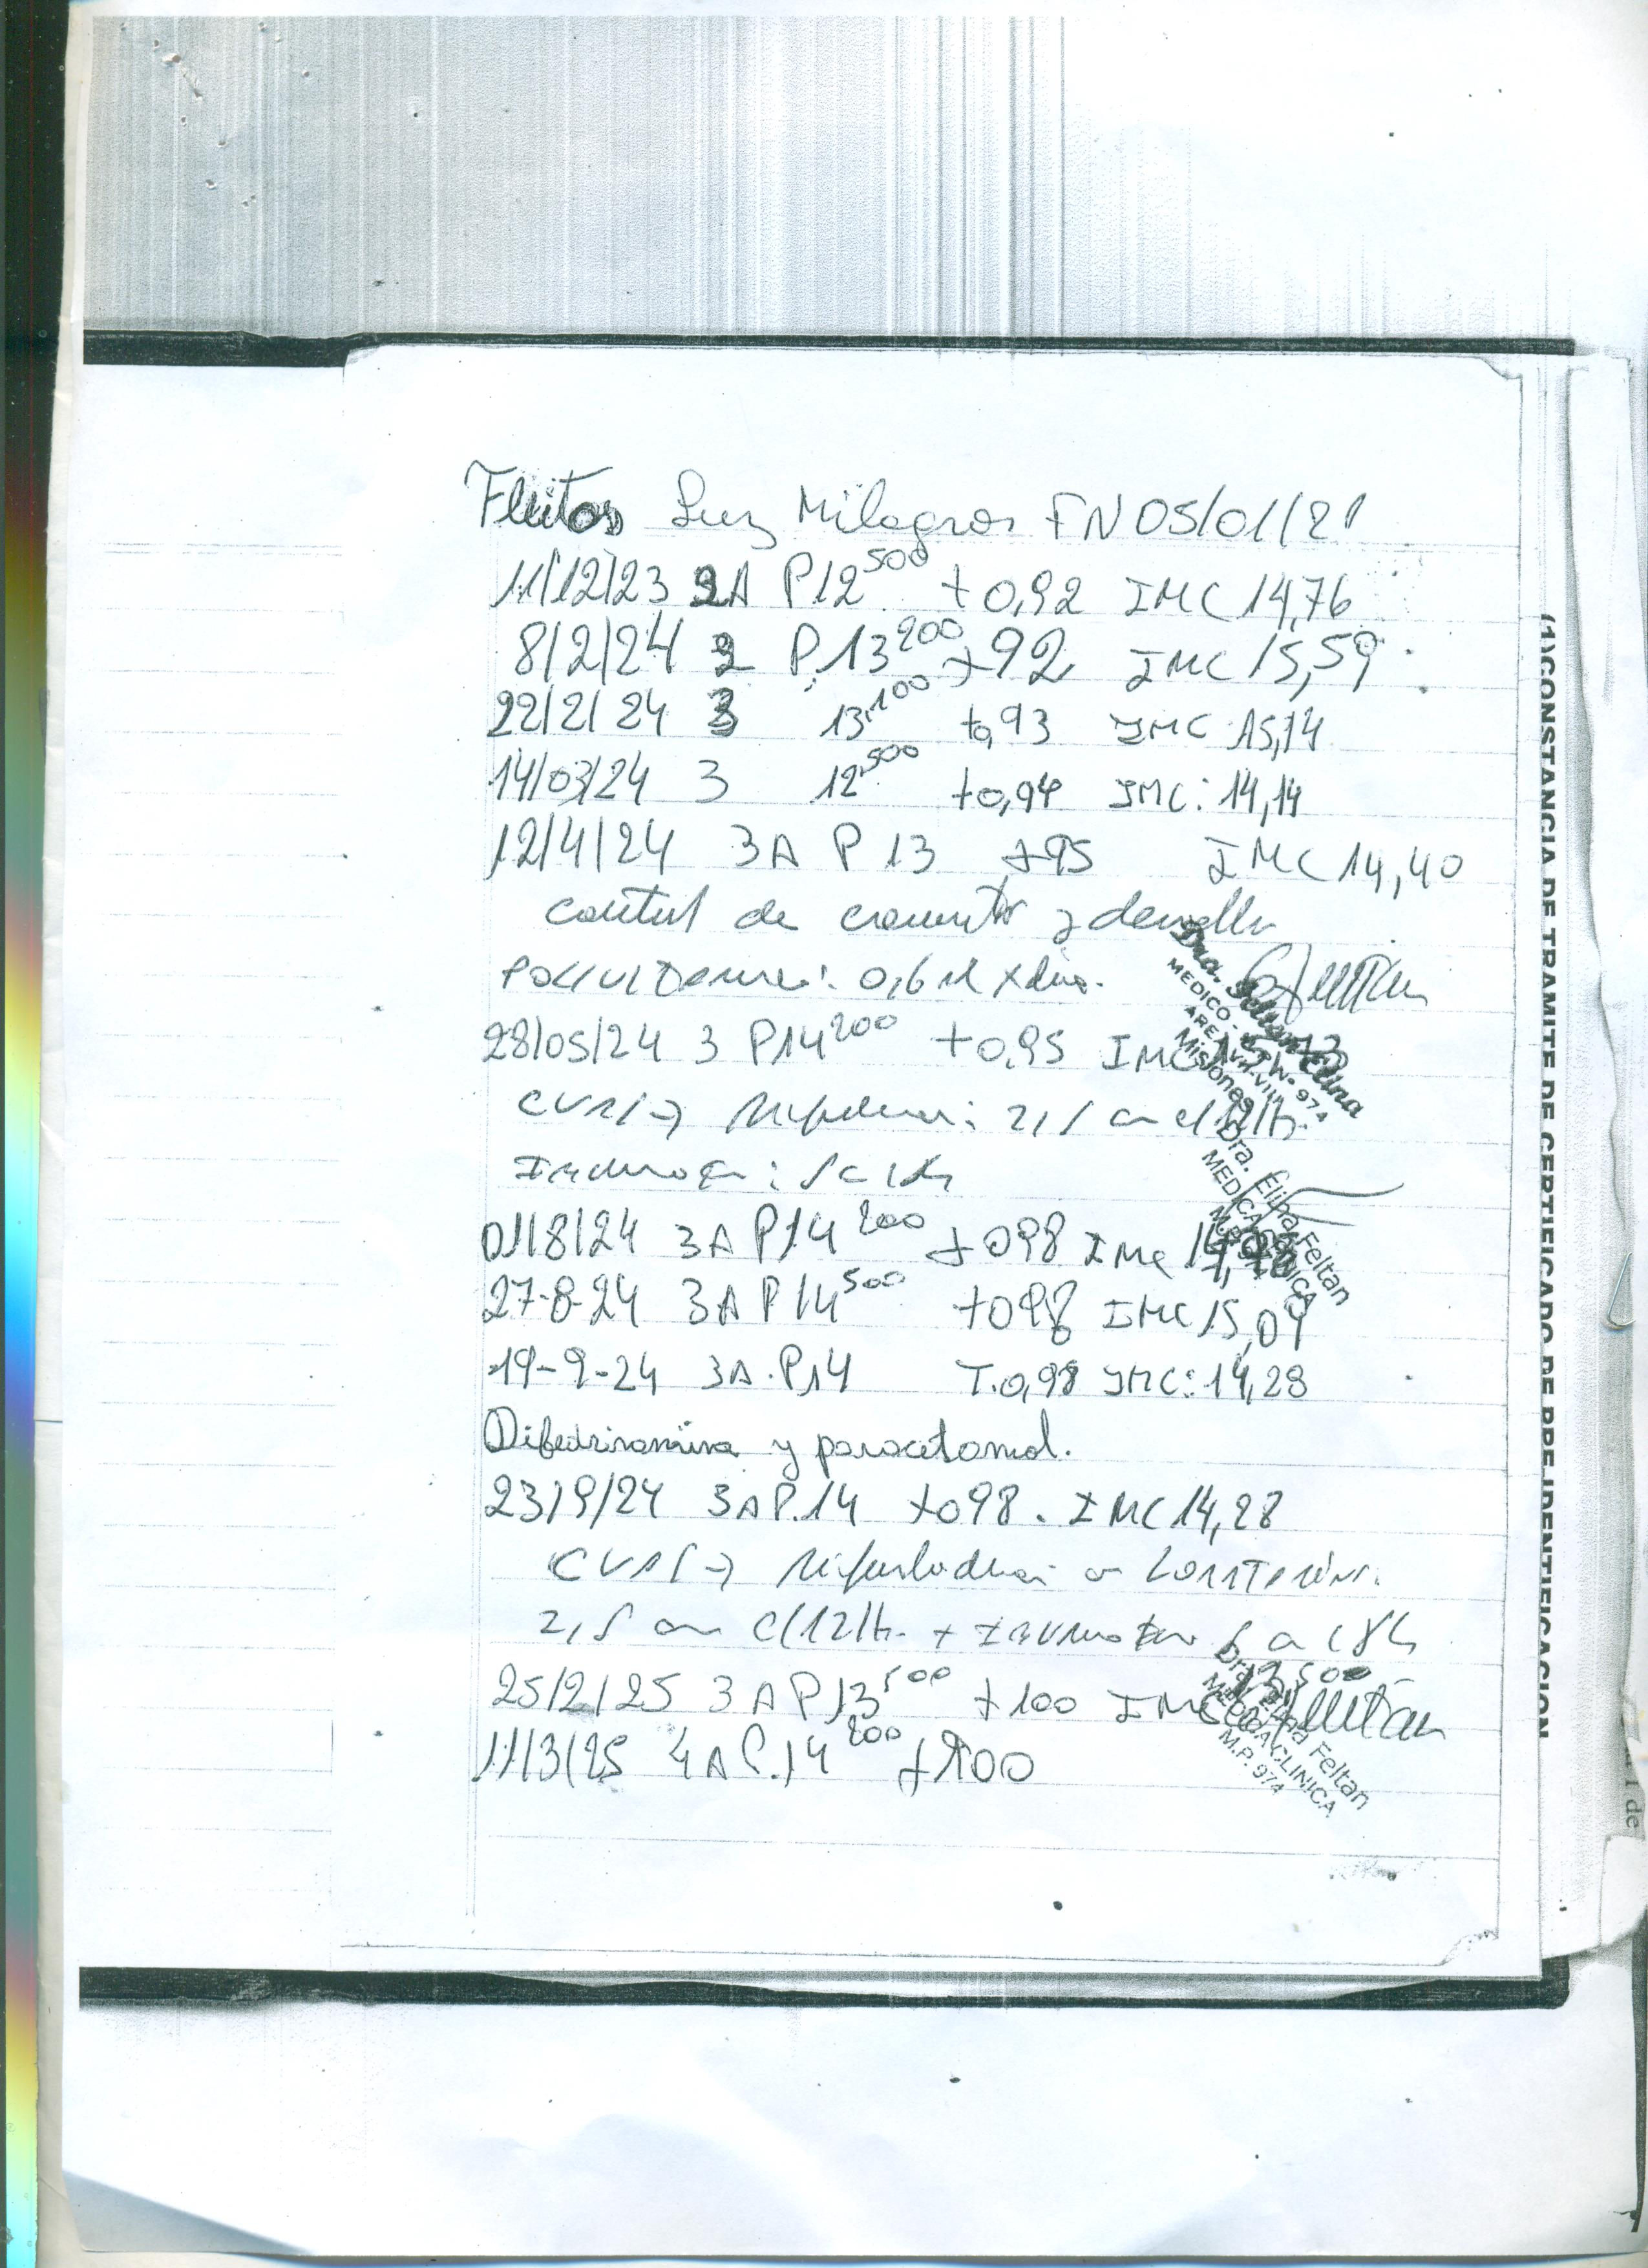 Fleitas Luz Milagros FN 05/01/21
11/12/23 2A P12500 t0,92 IMC 14,76
8/2/24 2 P.13200 t92 IMC 15,59
22/2/24 3 13,100 t0,93 IMC 15,14
14/03/24 3 12,500 t0,94 IMC: 14,14
12/4/24 3A P 13 t95 IMC 14,40
control de y
0,6 ml x dia.
28/05/24 3 P14200 t0,95 IMC
CVAS → 2,5 cm c/12h.
01/8/24 3A P14200 t098 IMC
27-8-24 3A P14500 t098 IMC 15,09
19-9-24 3A.P14 T.0,98 IMC: 14,28
y paracetamol.
23/9/24 3A P.14 t098. IMC 14,28
CVAS →
2,5 cm c/12h. +
25/2/25 3A P13500 t100 IMC 13,500
11/3/25 4A P.14200 t100
Dra.
MEDICO -
AREA
Misiones
974
Dra. Elina Feltan
MEDICA CLINICA
Dra. Elina Feltan
MEDICA CLINICA
M.P. 974
(1)CONSTANCIA DE TRAMITE DE CERTIFICADO DE PRE IDENTIFICACION
de